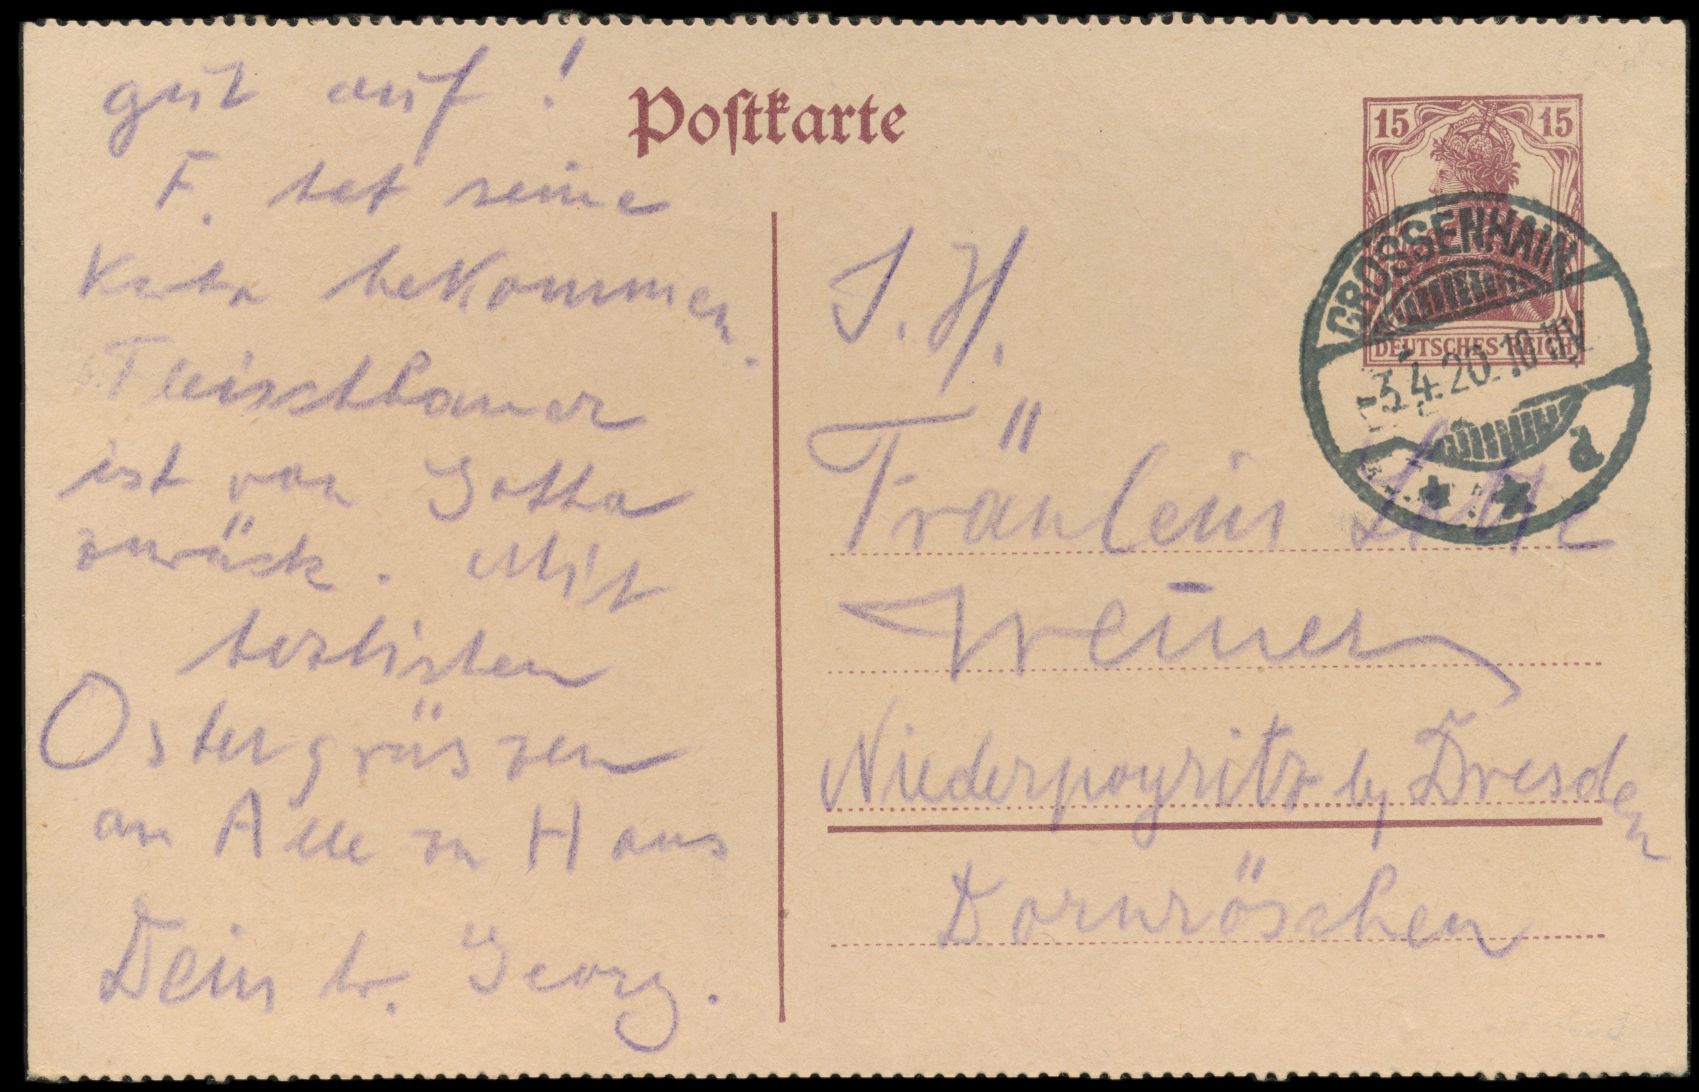 gut auf!
F. hat seine
Karte bekommen.
Fleischhauer
ist von Gotha
zurück. Mit
herzlichen
Ostergrüssen
an Alle zu Haus
Dein tr. Georg.
Postkarte
15 15
DEUTSCHES REICH
GROSSENHAIN
-3.4.20. 10-11V
a
S. H.
Fräulein Lotte
Weiner
Niederpoyritz b/ Dresden
Dornröschen